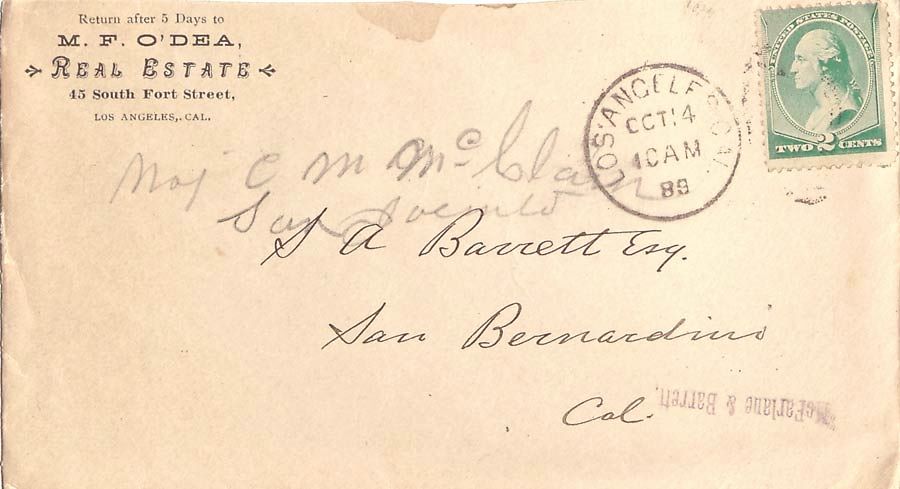 Return after 5 Days to
M. F. O'DEA,
REAL ESTATE
45 South Fort Street,
LOS ANGELES, CAL.
UNITED STATES POSTAGE
TWO 2 CENTS
LOS ANGELES CAL.
OCT 14
10 AM
89
Maj C M McClain
San Jacinto
S A Barrett Esq.
San Bernardino
Cal.
McFarlane & Barrett,